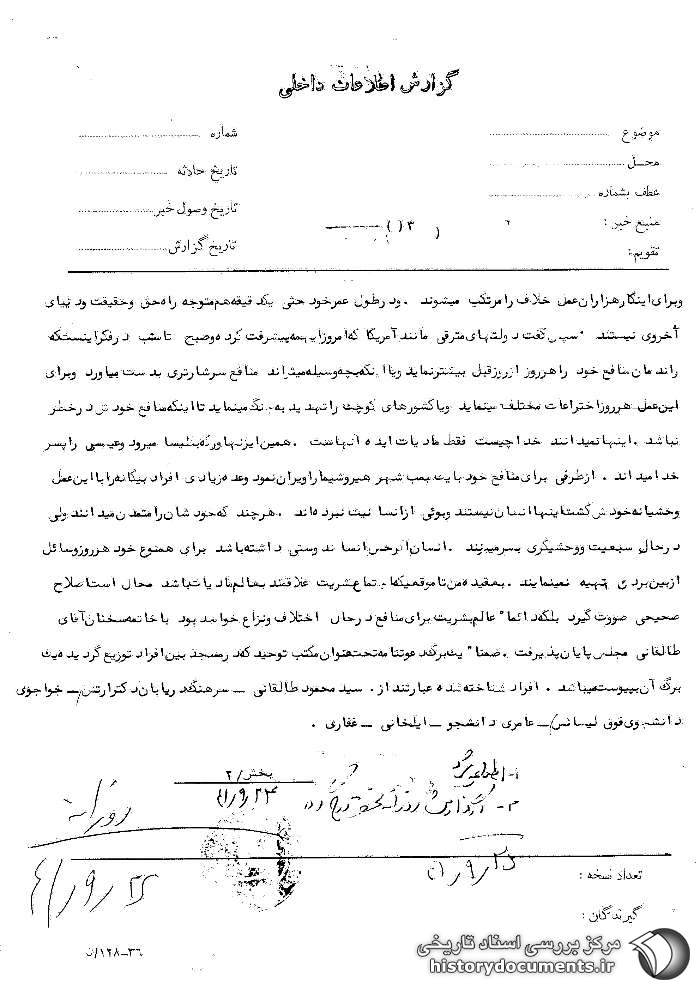 گزارش اطلاعات داخلی
موضوع
شماره
محل
تاریخ حادثه
عطف بشماره
تاریخ وصول خبر
منبع خبر :
۲
( ۳ ( )
تقویم:
تاریخ گزارش
وبرای اینکار هزاران عمل خلاف را مرتکب میشوند . ودر طول عمر خود حتی یکدقیقه هم متوجه راه حق وحقیقت ودنیای
اخروی نیستند سپس گفت دولتهای مترقی مانند آمریکا که امروز اینهمه پیشرفت کرده وصبح تا شب در فکر اینستکه
راندمان منافع خود را هرروز از روز قبل بیشتر نماید ویا اینکه بچه وسیله میتواند منافع سرشارتری بدست میاورد وبرای
این عمل هرروز اختراعات مختلف مینماید ویا کشورهای کوچک را تهدید بجنگ مینماید تا اینکه منافع خودش در خطر
نباشد . اینها نمیدانند خدا چیست فقط مادیات ایده آنهاست . همین ایزنهاور که بکلیسا میرود وعیسی را پسر
خدا میداند . از طرفی برای منافع خود با یک بمب شهر هیروشیما را ویران نمود وعده زیادی افراد بیگناه را با این عمل
وحشیانه خودش کشت اینها انسان نیستند وبوئی از انسانیت نبرده اند . هرچند که خودشان را متمدن میدانند ولی
در حال سبعیت ووحشیگری بسر میبرند . انسان اگر حس انساندوستی داشته باشد برای همنوع خود هرروز وسائل
از بین بردن تهیه نمینماید . بعقیده من تا موقعیکه اجتماع بشریت علاقمند بعالم مادیات باشد محال است اصلاح
صحیحی صورت گیرد بلکه دائما" عالم بشریت برای منافع در حال اختلاف ونزاع خواهد بود با خاتمه سخنان آقای
طالقانی مجلس پایان پذیرفت . ضمنا" یک برگ دعوتنامه تحت عنوان مکتب توحید که در مسجد بین افراد توزیع گردیده یک
برگ آن بپیوست میباشد . افراد شناخته شده عبارتند از . سید محمود طالقانی – سرهنگ دریابان دکتر ارتش – خواجوی
دانشجوی فوق لیسانس – عامری دانشجو – ایلخانی – غفاری .
بخش /۲
۴۱/۹/۲۴
روزانه
۴۱/۹/۲۵
۴۱/۹/۲۵
تعداد نسخه :
گیرندگان :
۳۶–۱۲۸/ن
مرکز بررسی اسناد تاریخی
historydocuments.ir